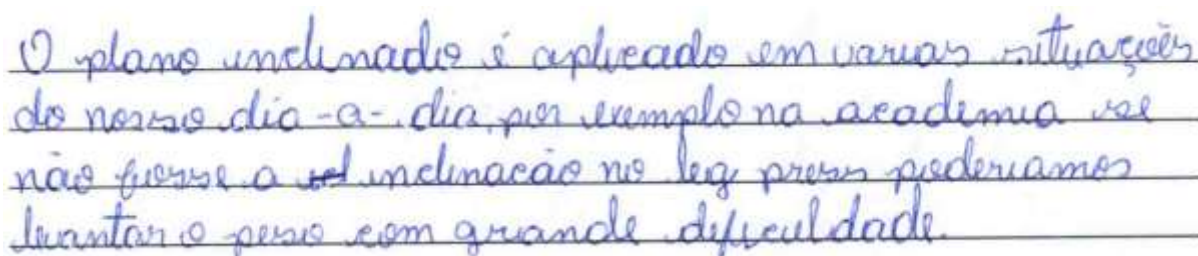 O plano inclinado é aplicado em varias situações
do nosso dia-a-dia, por exemplo na academia se
não fosse a inclinacão no leg press poderiamos
levantar o peso com grande dificuldade.